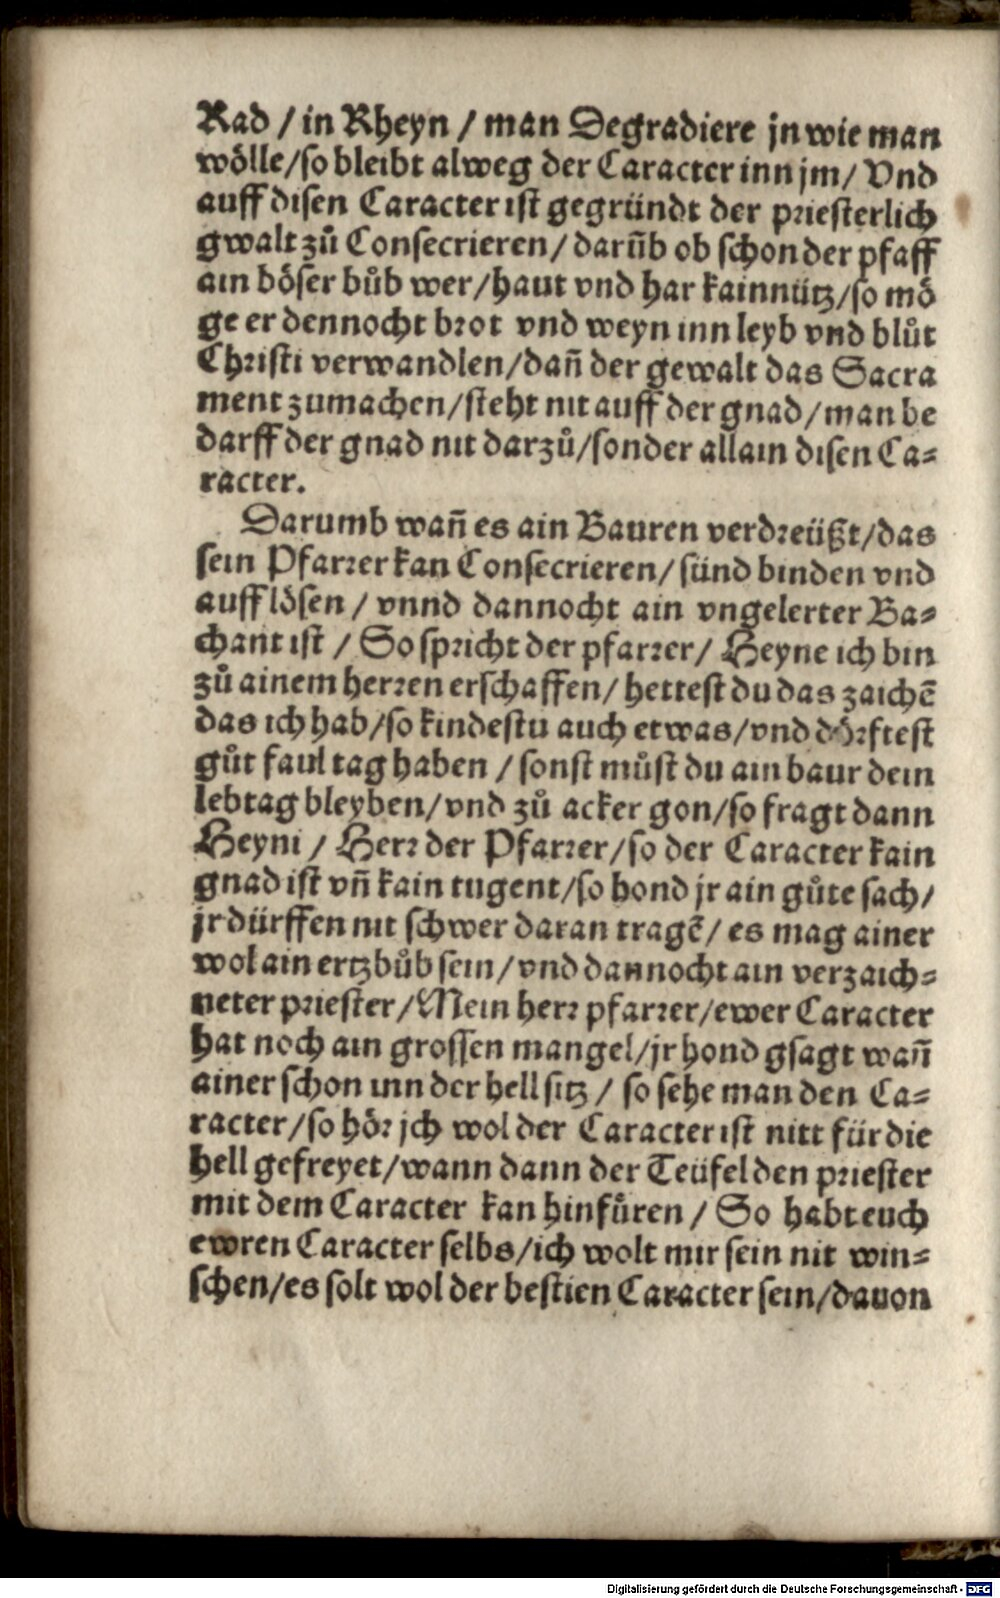 Rad / in Rheyn / man Degradiere jn wie man
wölle/so bleibt alweg der Caracter inn jm/ Vnd
auff disen Caracter ist gegründt der priesterlich
gwalt zů Consecrieren/ darũb ob schon der pfaff
ain böser bůb wer/haut vnd har kainnütz/so mö
ge er dennocht brot vnd weyn inn leyb vnd blůt
Christi verwandlen/dañ der gewalt das Sacra
ment zumachen/steht nit auff der gnad/man be
darff der gnad nit darzů/sonder allain disen Ca⸗
racter.
Darumb wañ es ain Bauren verdreüßt/das
sein Pfarrer kan Consecrieren/ sünd binden vnd
auff lösen / vnnd dannocht ain vngelerter Ba⸗
chant ist / So spricht der pfarrer/ Heyne ich bin
zů ainem herren erschaffen/ hettest du das zaichẽ
das ich hab/so kindestu auch etwas/vnd dörftest
gůt faul tag haben / sonst můst du ain baur dein
lebtag bleyben/vnd zů acker gon/so fragt dann
Heyni / Herr der Pfarrer/so der Caracter kain
gnad ist vñ kain tugent/so hond jr ain gůte sach/
jr dürffen nit schwer daran tragẽ/ es mag ainer
wol ain ertzbůb sein/vnd dannocht ain verzaich⸗
neter priester/Mein herr pfarrer/ewer Caracter
hat noch ain grossen mangel/jr hond gsagt wañ
ainer schon inn der hell sitz / so sehe man den Ca⸗
racter/so hör jch wol der Caracter ist nitt für die
hell gefreyet/wann dann der Teüfel den priester
mit dem Caracter kan hinfůren / So habt euch
ewren Caracter selbs/ich wolt mir sein nit win⸗
schen/es solt wol der bestien Caracter sein/dauon
Digitalisierung gefördert durch die Deutsche Forschungsgemeinschaft - DFG